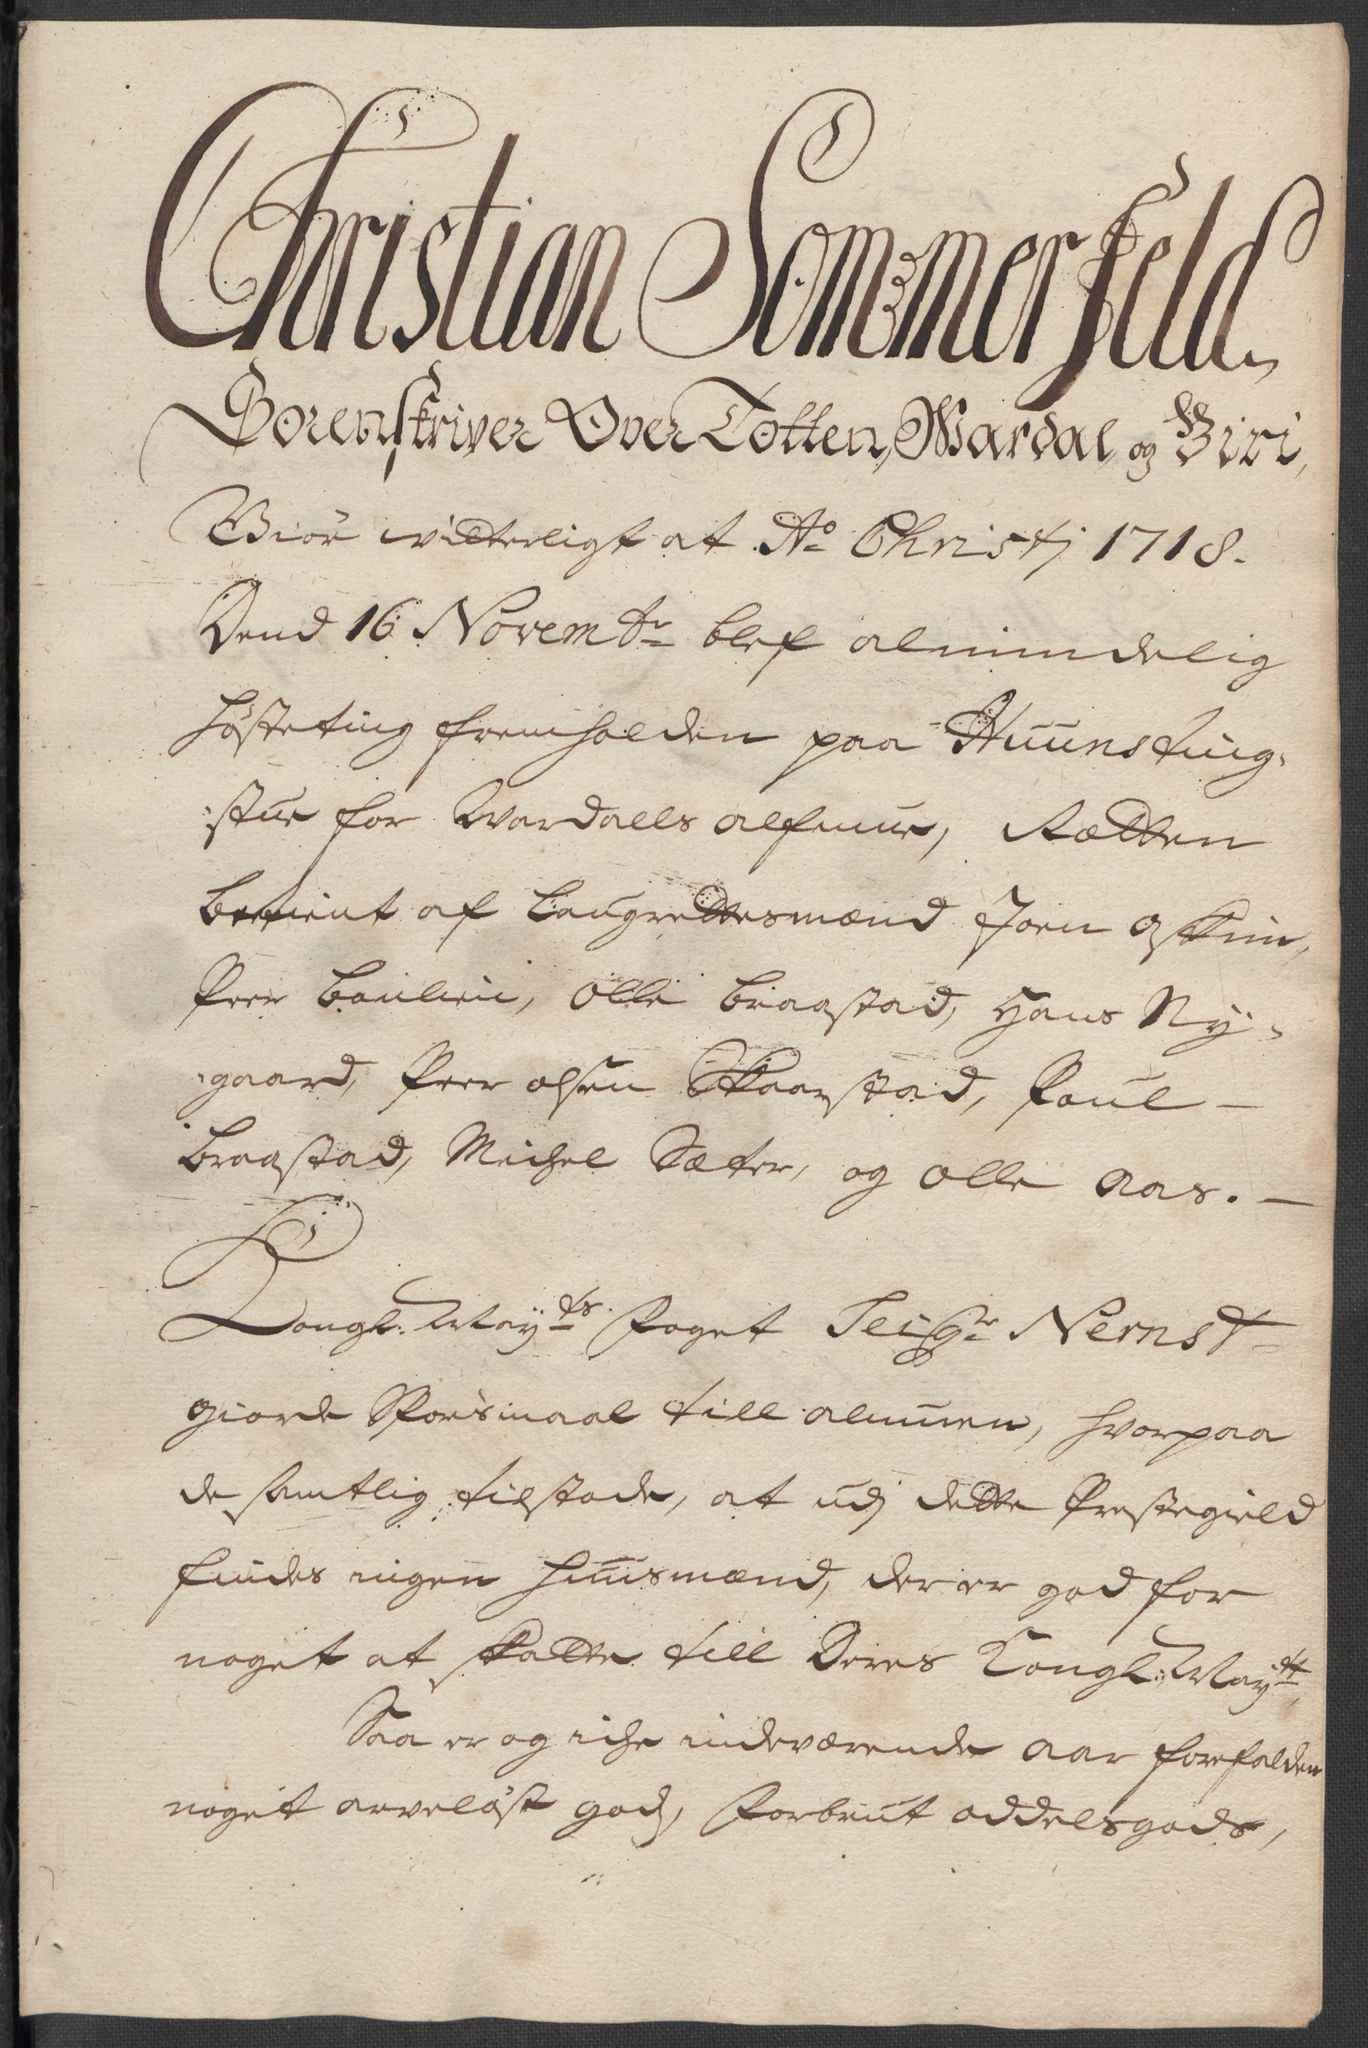 Christian Sommerfeld,
Sorenskriver Over Totten, Wardal og Biri,
Giör witterligt at Ao Christj 1718.
Dend 16 Novembr blef almindelig
höste ting fremholden paa Huuns ting-
stue for Wardalls almue, Rætten
betient af Laugrettesmænd Joen
Peer Baulien, Olle Braastad, Hans Ny-
gaard, Peer Olsen Skaarstad, Poul
Braastad, Michel Sæter, og Olle Aas.
Kongl: Mayts Foget Seigr Nernst
giorde Spörsmaal till almuen, hvorpaa
de samtlig tilstode, at udj dette Prestegield
findes ingen huusmænd, der er god for
noget at skatte till Deres Kongl: Maytt,
Saa er og iche indeværende aar forefalden
noget arvelöst gods, Forbrut oddelsgods,